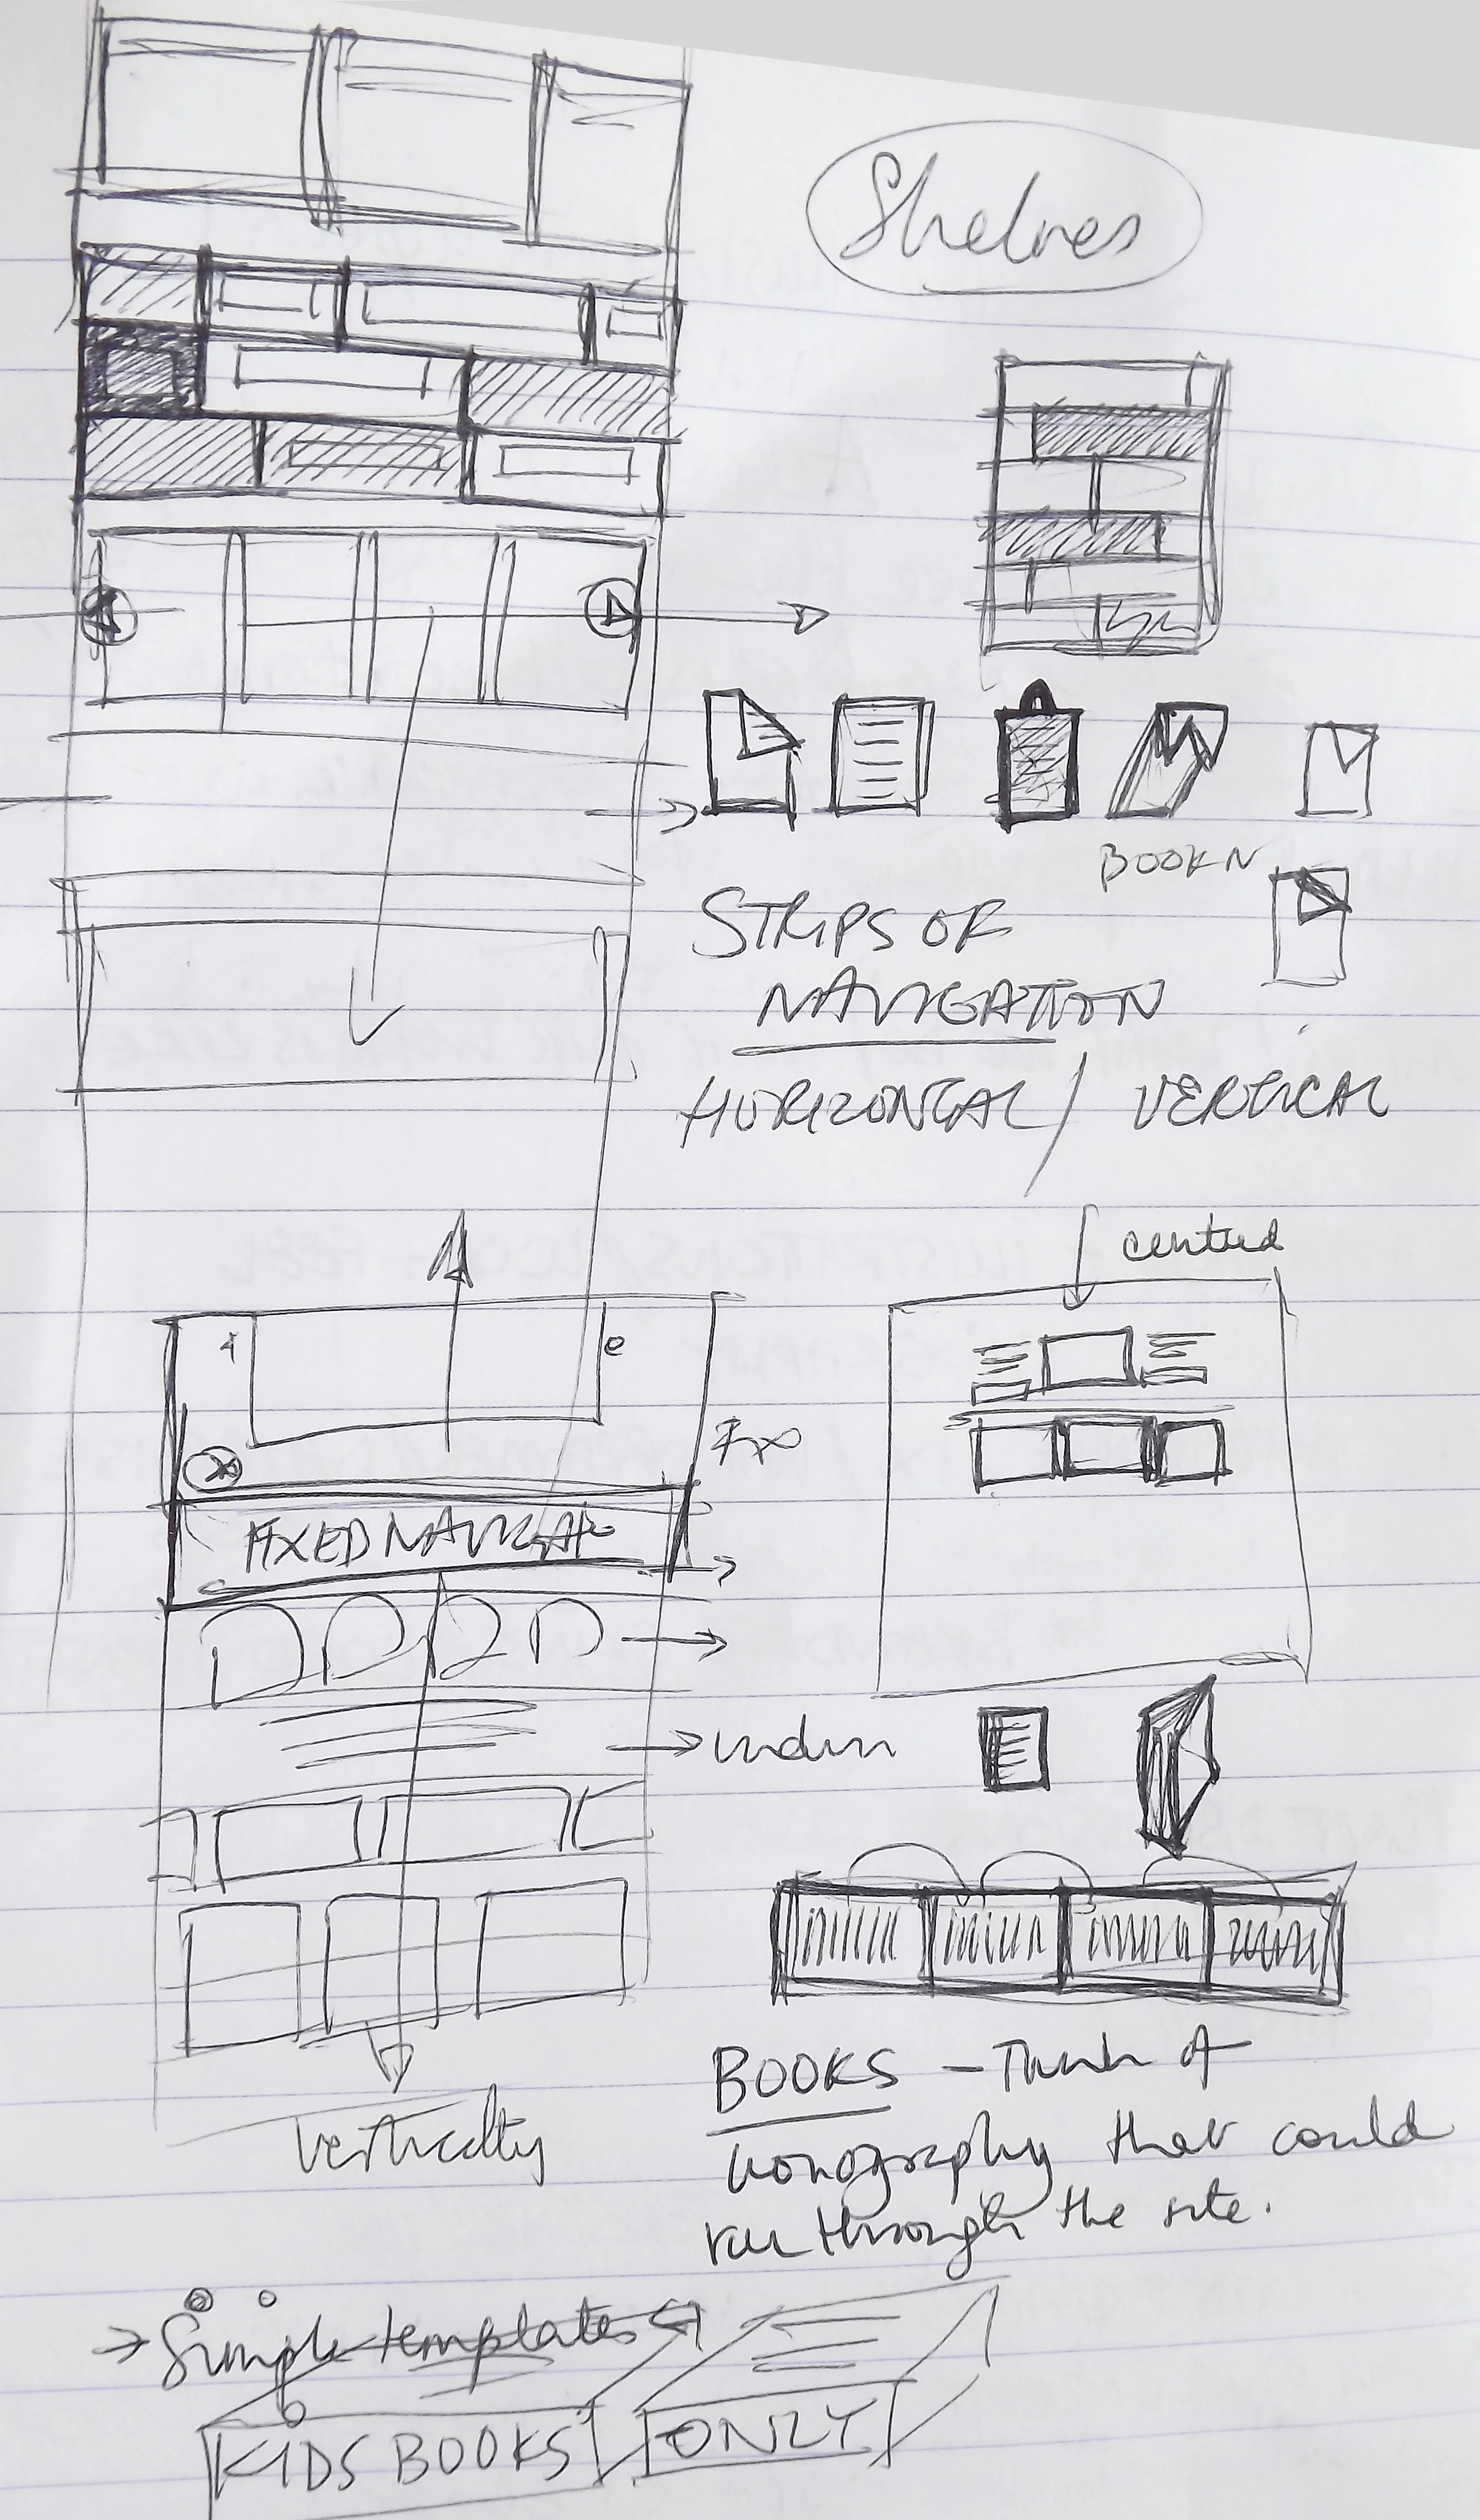 Shelves
BOOKN
STRIPS OF
NAVIGATION
HORIZONTAL / VERTICAL
centred
FIXED NAVIGAT
BOOKS - Think of
iconography that could
run through the site.
vertically
→ Simple templates
KIDS BOOKS ONLY